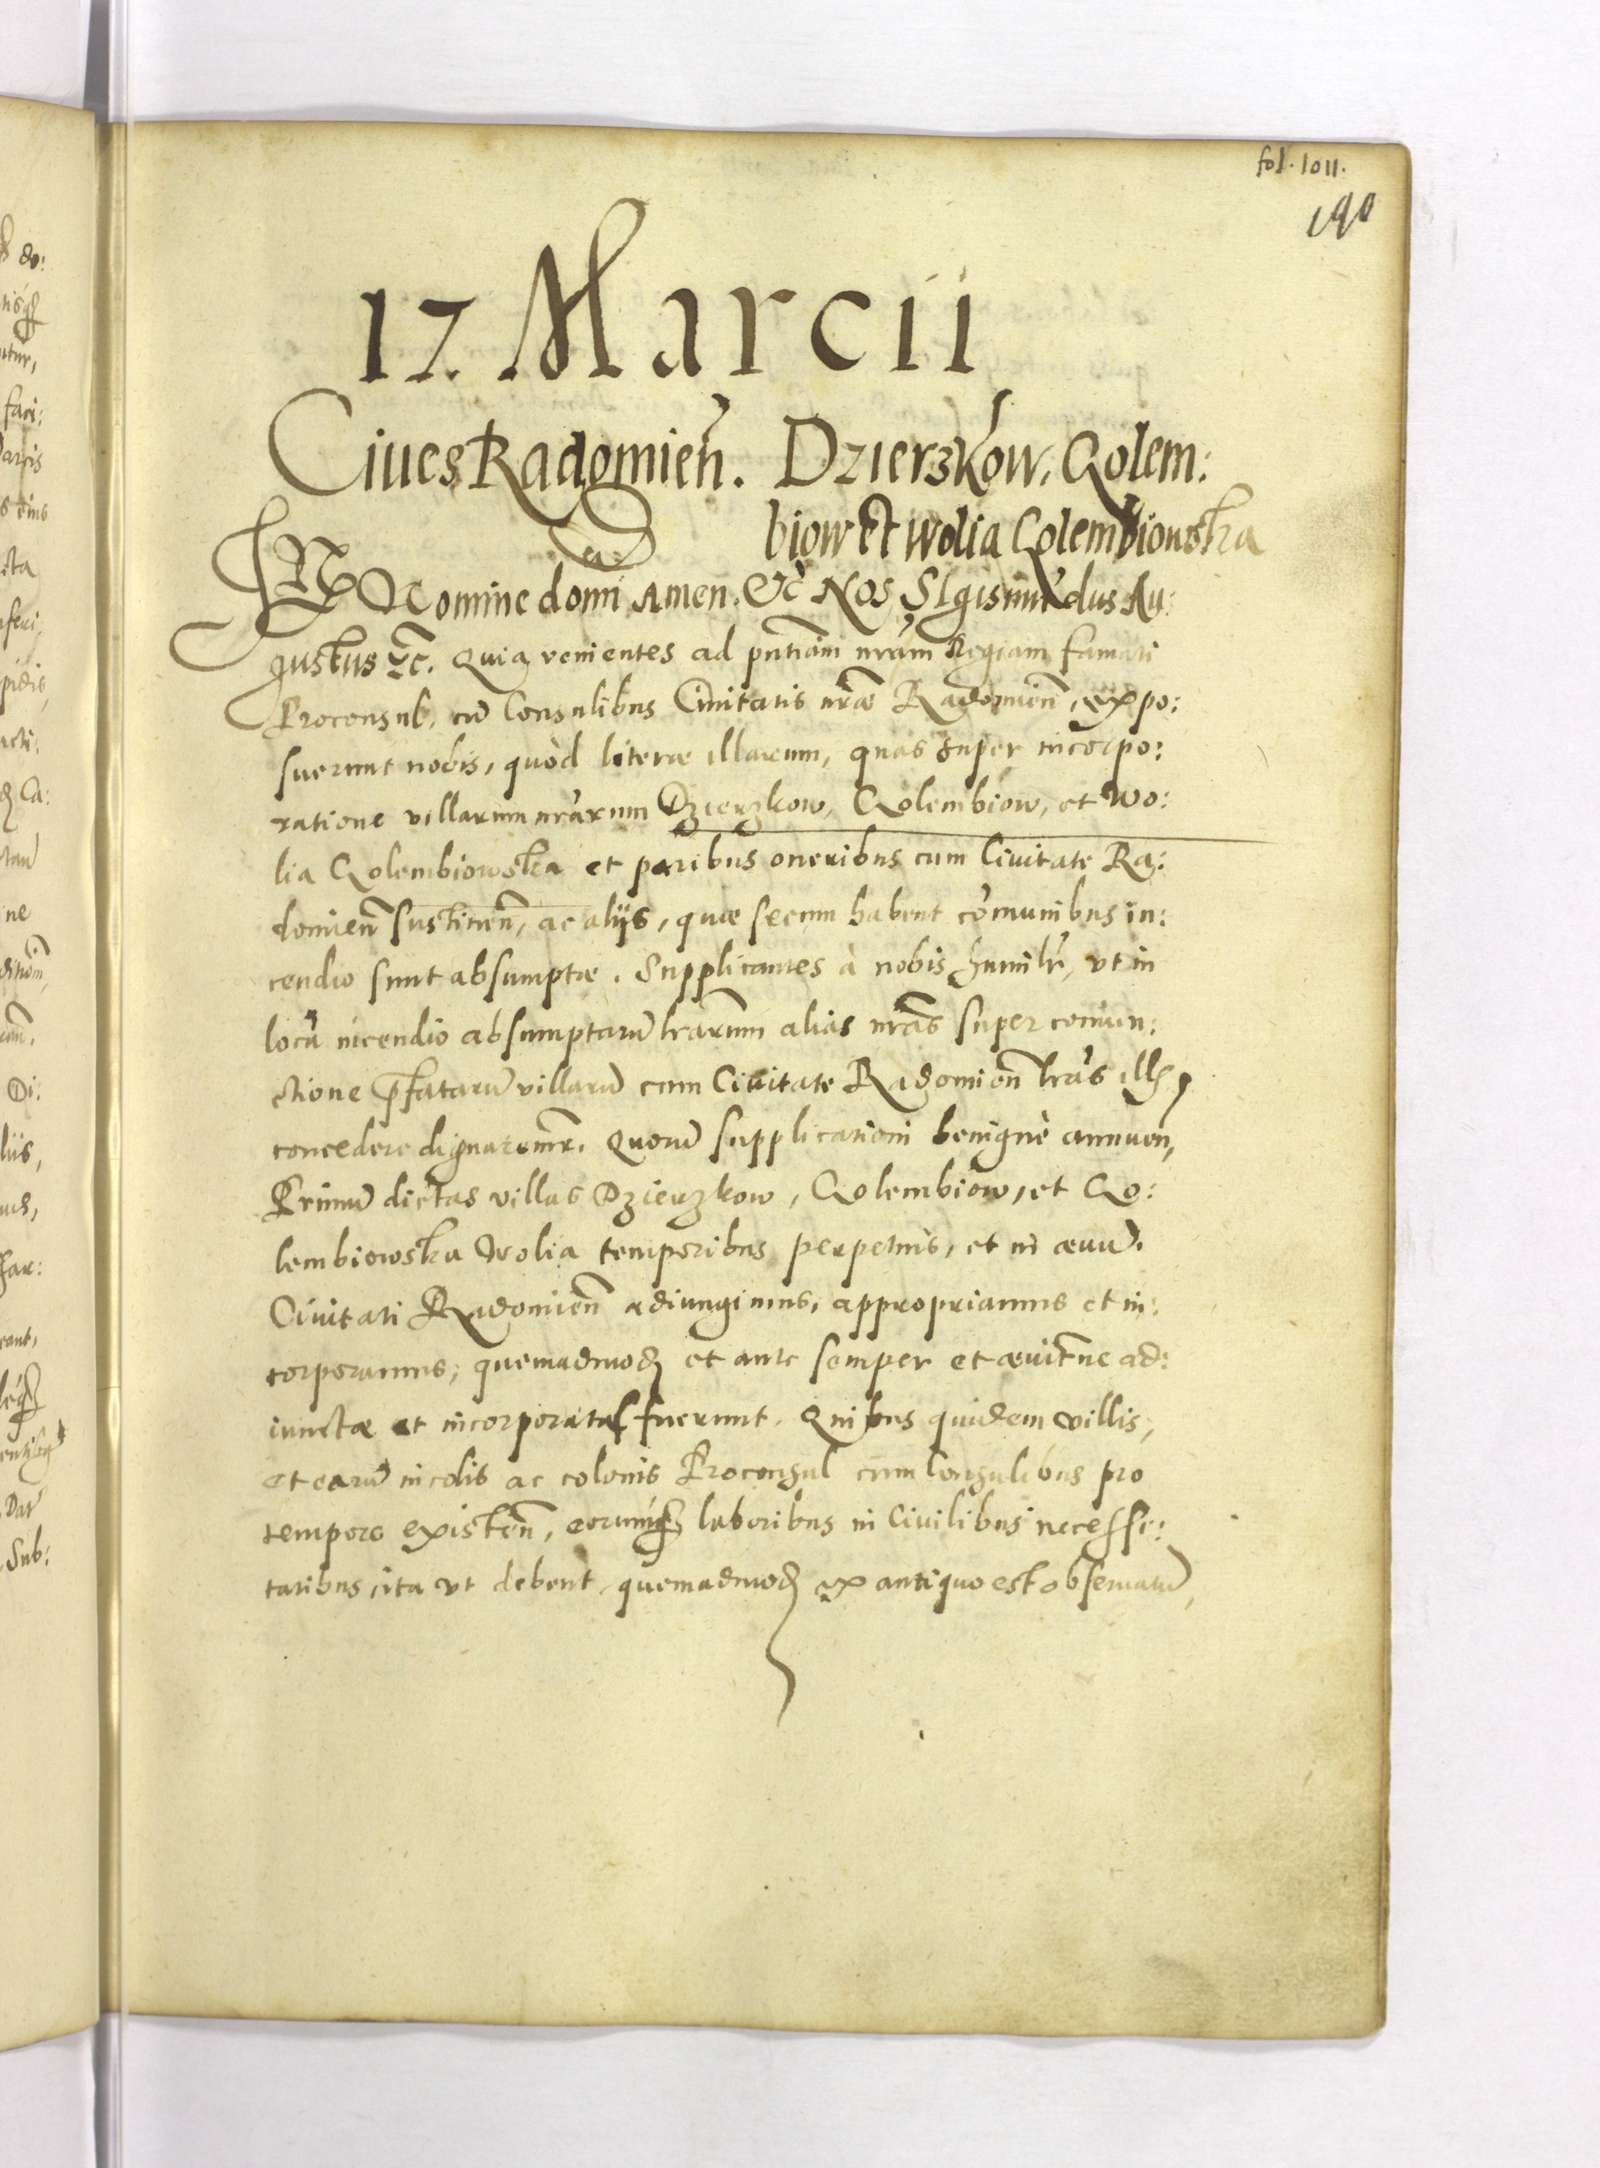 fol. 1011.
190
17. Marcii
Ciues Radomien̄. Dzierzkow, Golem:
biow Et Wolia Golembiowska
IN Nomine domi Amen. Etc̄ Nos SIgismundus Au:
gustus Etc̄. Quia venientes ad pn̄tiam nr̄am Regiam famati
Proconsul, cū Consulibus Ciuitatis nr̄æ Radomien̄, expo:
suerunt nobis, quòd literæ illarum, quas super incorpo:
ratione villarum nr̄arum Dzierzkow, Golembiow, et Wo:
lia Golembiowska et paribus oneribus cum Ciuitate Ra:
domien̄ sustinen̄, ac alijs, quæ secum habent com̄unibus in:
cendio sunt absumptæ. Supplicantes à nobis humilr̄, vt in
locū incendio absumptarū lr̄arum alias nr̄as super coniun:
ctione p̄fatarū villarū cum Ciuitate Radomien̄ lr̄as illis
concedere dignaremur. Quorū supplicationi benignè annuen,
Primū dictas villas Dzierzkow, Golembiow, et Go:
lembiowska Wolia temporibus perpetuis, et in æuū.
Ciuitati Radomien̄ adiungimus, appropriamus et in:
corporamus, quemadmodꝫ et ante semper et æuitnē ad:
iunctæ et incorporatæ fuerunt. Quibus quidem villis,
et earū incolis ac colonis Proconsul cum Consulibus pro
tempore existen̄, eorumqꝫ laboribus in Ciuilibus necesse:
tatibus ita vt debent quemadmodꝫ ex antiquo est obseruatū,